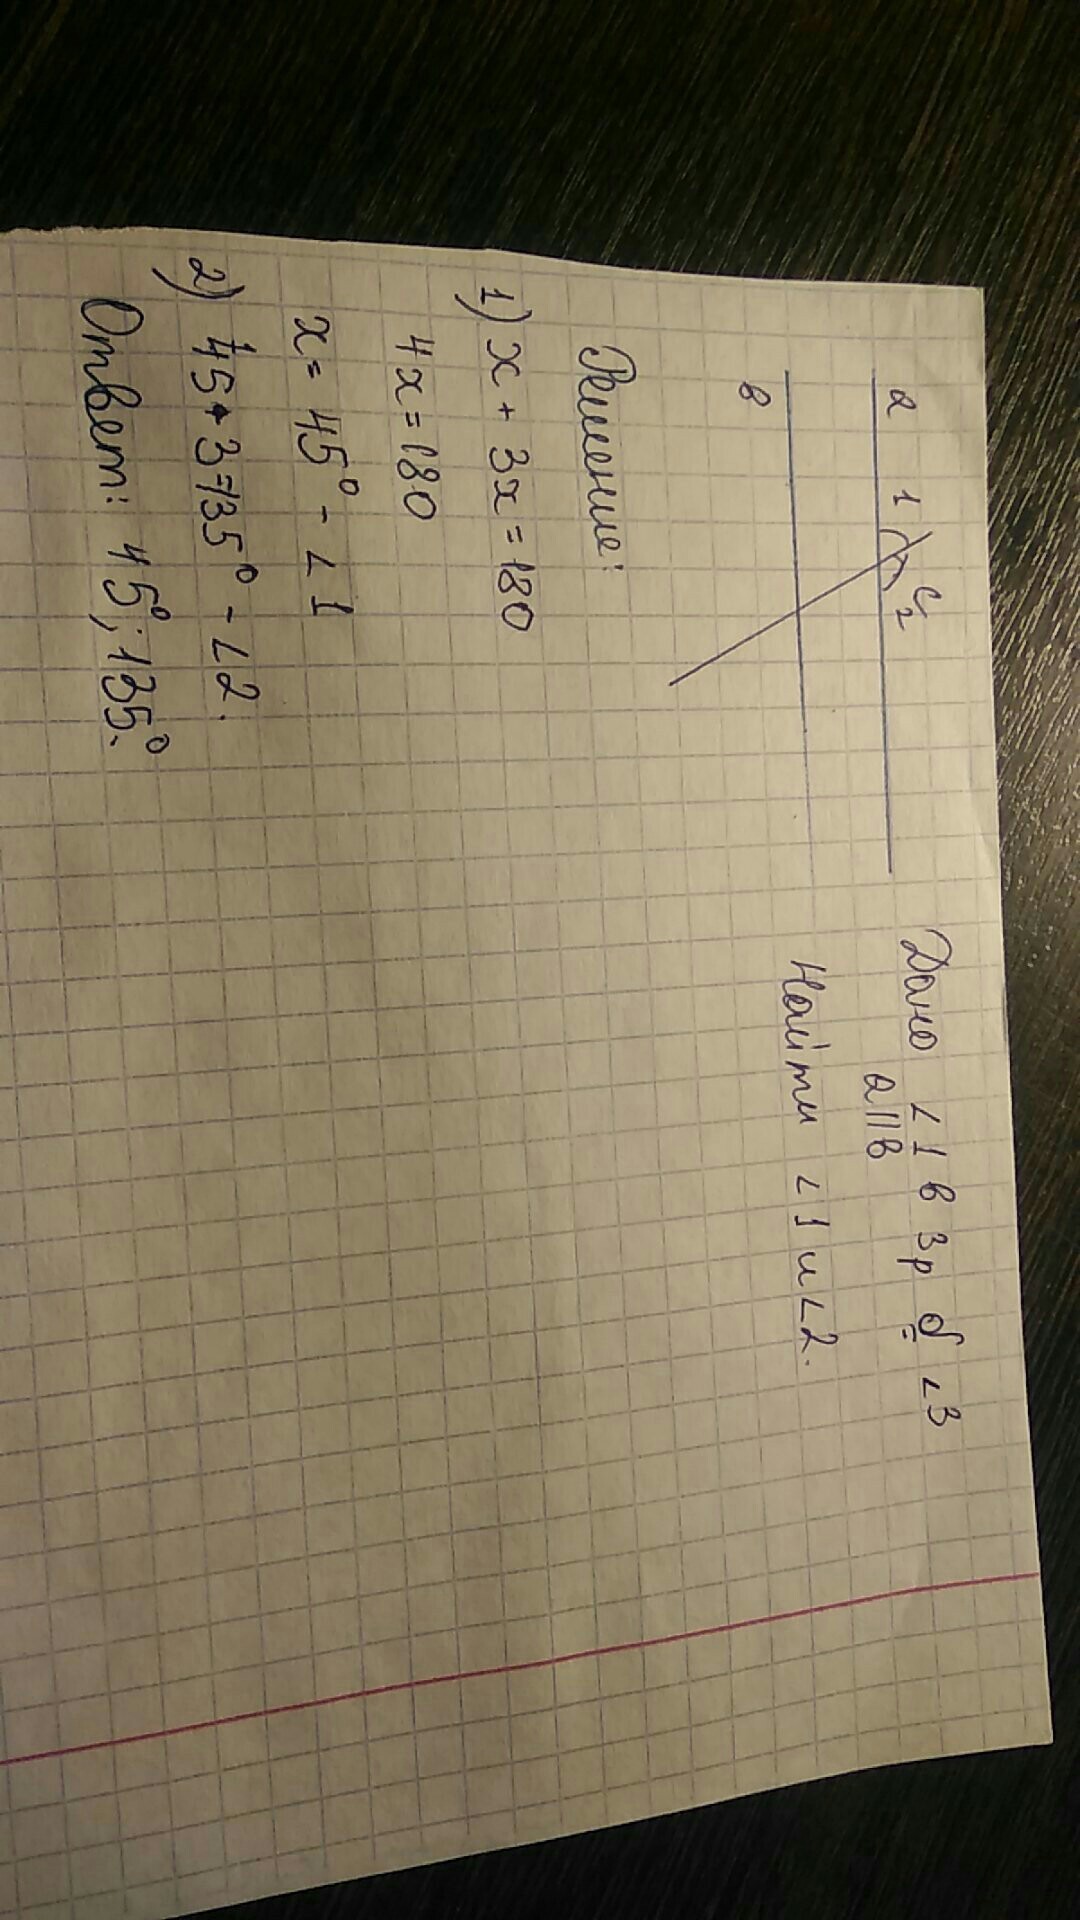 a 1 c 2
в
Дано ∠1 в 3 р б ∠3
a||в
Найти ∠1 и ∠2.
Решение:
1) x + 3x = 180
4x = 180
x = 45° - ∠1
2) 45 • 3 = 135° - ∠2.
Ответ: 45°; 135°.